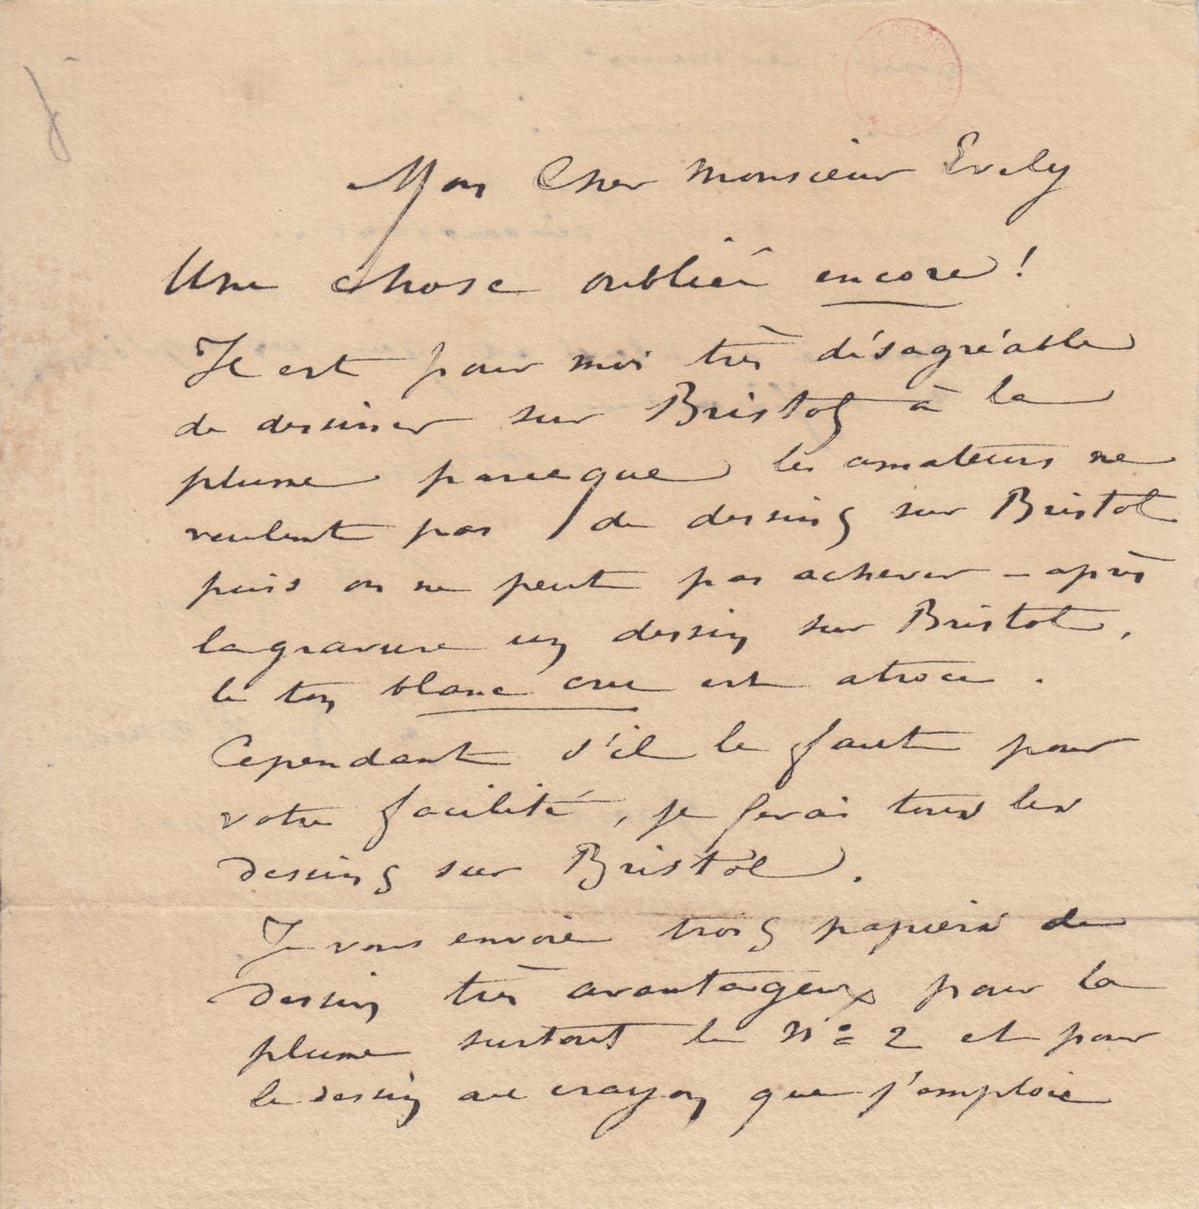 Mon Cher Monsieur Evely
Une chose oubliée encore !
Il est pour moi très désagréable
de dessiner sur Bristol à la
plume parceque les amateurs ne
veulent pas de dessins sur Bristol
puis on ne peut pas achever - après
la gravure un dessin sur Bristol,
le ton blanc cru est atroce .
Cependant s'il le faut pour
votre facilité, je ferai tous les
dessins sur Bristol.
Je vous envoie trois papiers de
dessin très avantageux pour la
plume surtout le N° 2 et pour
le dessin au crayon que j'emploie